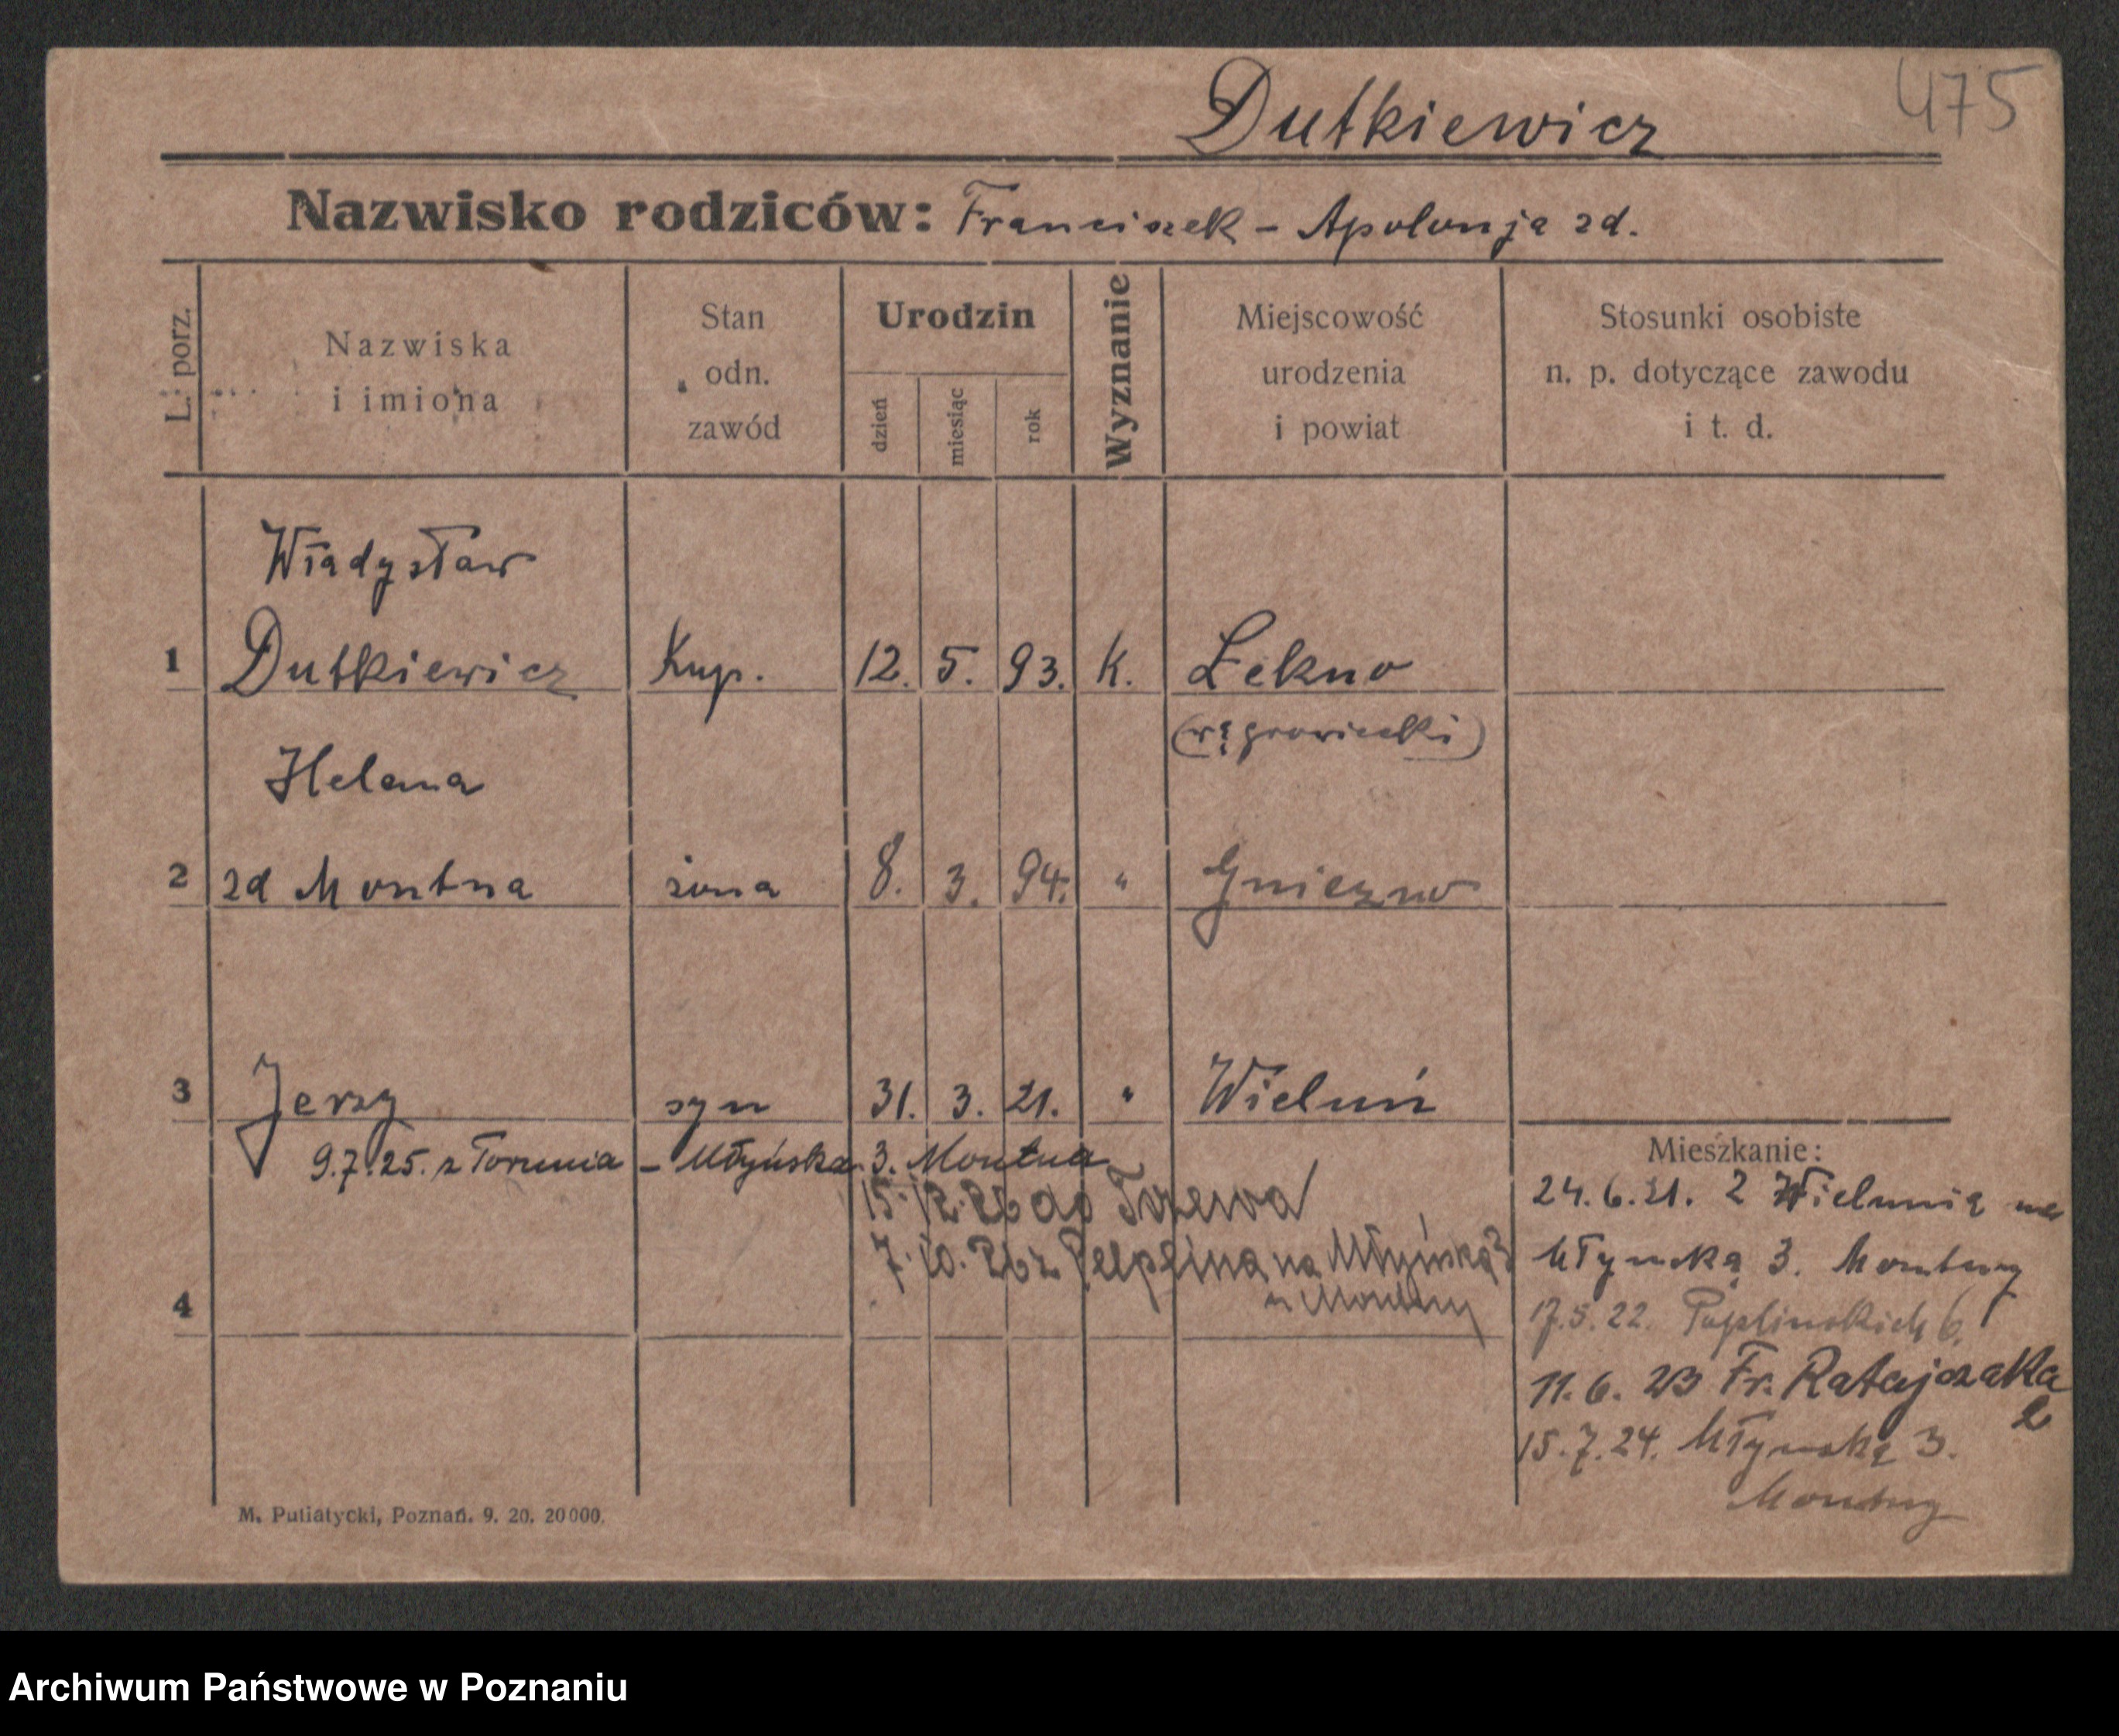 475
Dutkiewicz
Nazwisko rodziców: Franciszek - Apolonja zd.
L. porz.
Nazwiska
i imiona
Stan
odn.
zawód
Urodzin
dzień
miesiąc
rok
Wyznanie
Miejscowość
urodzenia
i powiat
Stosunki osobiste
n. p. dotyczące zawodu
i t. d.
Władysław
1 Dutkiewicz Kup. 12. 5. 93. K. Łekno
(wągrowiecki)
Helena
2 zd Montna żona 8. 3. 94. " Gniezno
3 Jerzy syn 31. 3. 21. " Wieluń
9.7.25. z Torunia - Młyńska 3. Montna
15.12.26 do Tczewa
7.10.26 z Pelplina na Młyńską 3
u Montny
4
Mieszkanie:
24.6.21. z Wielunia na
Młyńską 3. Montny
17.5.22. Paplinskich 6.
11.6.23 Fr. Ratajczaka
2
15.7.24. Młyńską 3.
Montny
M. Putiatycki, Poznań. 9. 20. 20000.
Archiwum Państwowe w Poznaniu